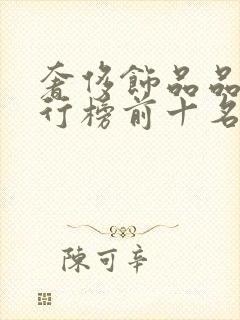 奢侈飾品品
行榜前十名
陳可辛